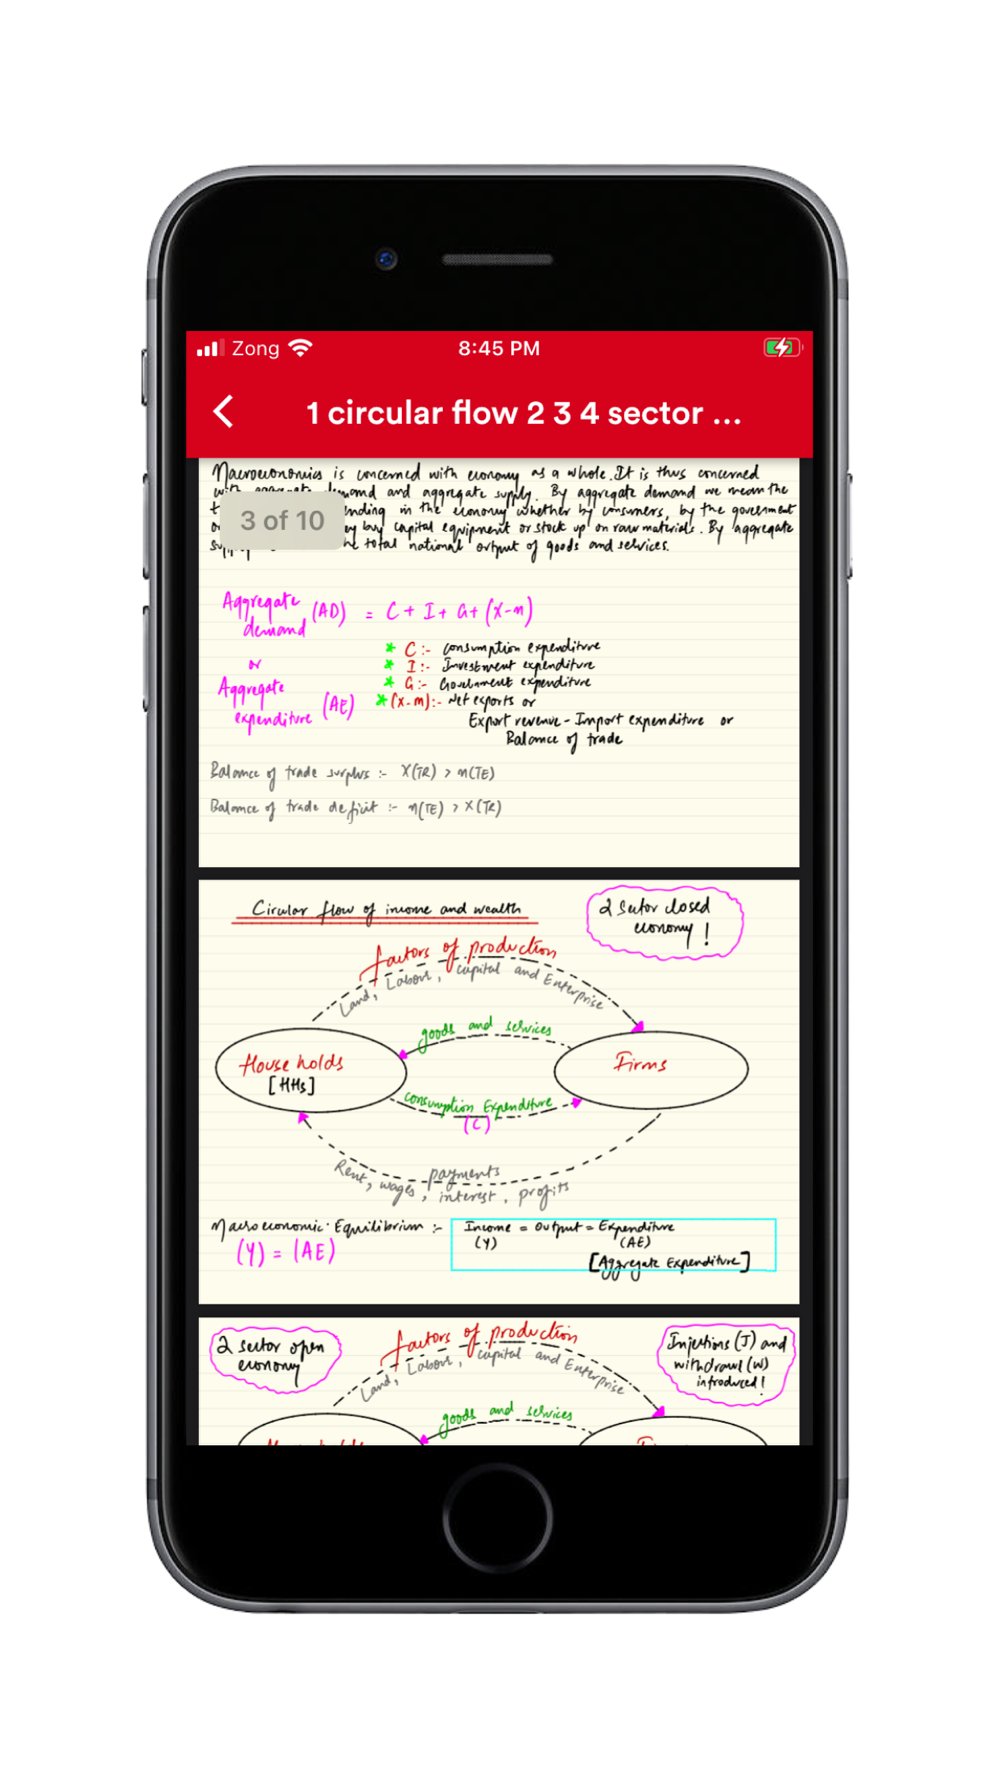 Zong
8:45 PM
1 circular flow 2 3 4 sector ...
Macroeconomics is concerned with economy as a whole. It is thus concerned
with aggregate demand and aggregate supply. By aggregate demand we mean the
ending in the economy whether by consumers, by the government
3 of 10
y buy capital equipment or stock up on raw materials. By aggregate
he total national output of goods and services.
Aggregate demand (AD) = C + I + G + (X-M)
or
Aggregate expenditure (AE)
* C :- consumption expenditure
* I :- Investment expenditure
* G :- Government expenditure
* (x-m) :- Net exports or
Export revenue - Import expenditure or
Balance of trade
Balance of trade surplus :- X(TR) > M(TE)
Balance of trade deficit :- M(TE) > X(TR)
Circular flow of income and wealth
2 Sector closed
economy !
factors of production
Land, Labour, capital and Enterprise
goods and services
House holds
[HHs]
Firms
consumption Expenditure
(C)
payments
Rent, wages, interest, profits
Macroeconomic Equilibrium :-
(Y) = (AE)
Income = Output = Expenditure
(Y) (AE)
[Aggregate Expenditure]
2 sector open
economy
factors of production
Land, Labour, capital and Enterprise
Injections (J) and
withdrawl (W)
introduced !
goods and services